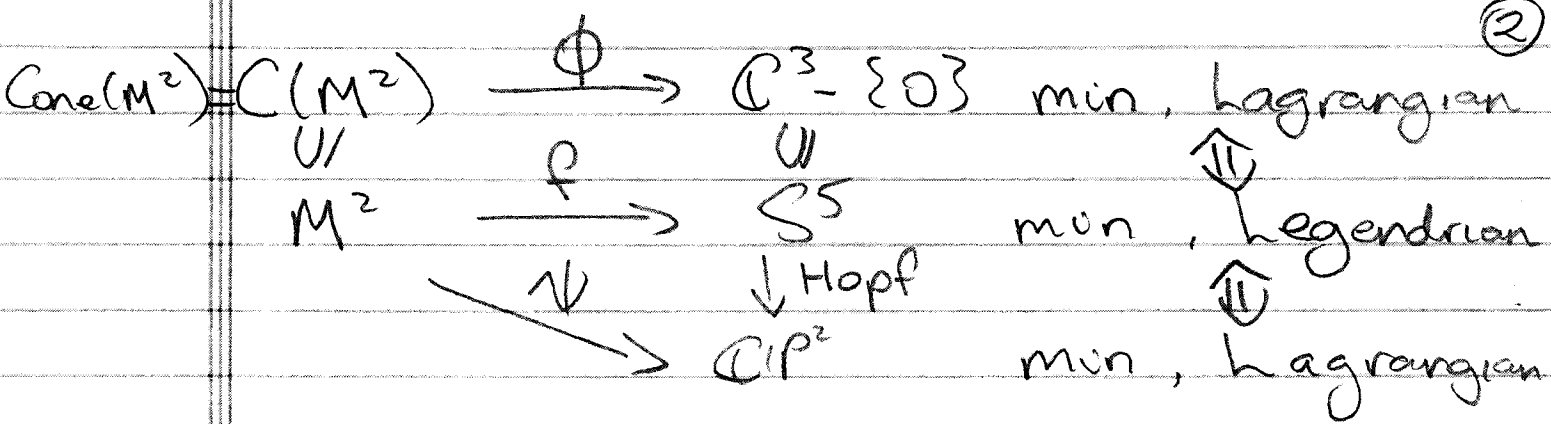 ②
Cone(M²) = C(M²) —Φ→ ℂ³ - {0} min, Lagrangian
∪| ∪| ⇕
M² —f→ S⁵ min, Legendrian
ψ ↘ ↓ Hopf ⇕
ℂP² min, Lagrangian